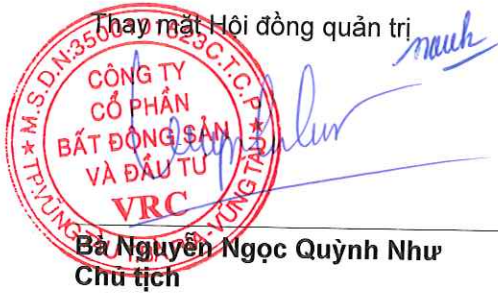 Thay mặt Hội đồng quản trị
M.S.D.N: C.T.C.P
CÔNG TY
CỔ PHẦN
BẤT ĐỘNG SẢN
VÀ ĐẦU TƯ
VRC
TP.VŨNG VŨNG TÀU
Bà Nguyễn Ngọc Quỳnh Như
Chủ tịch